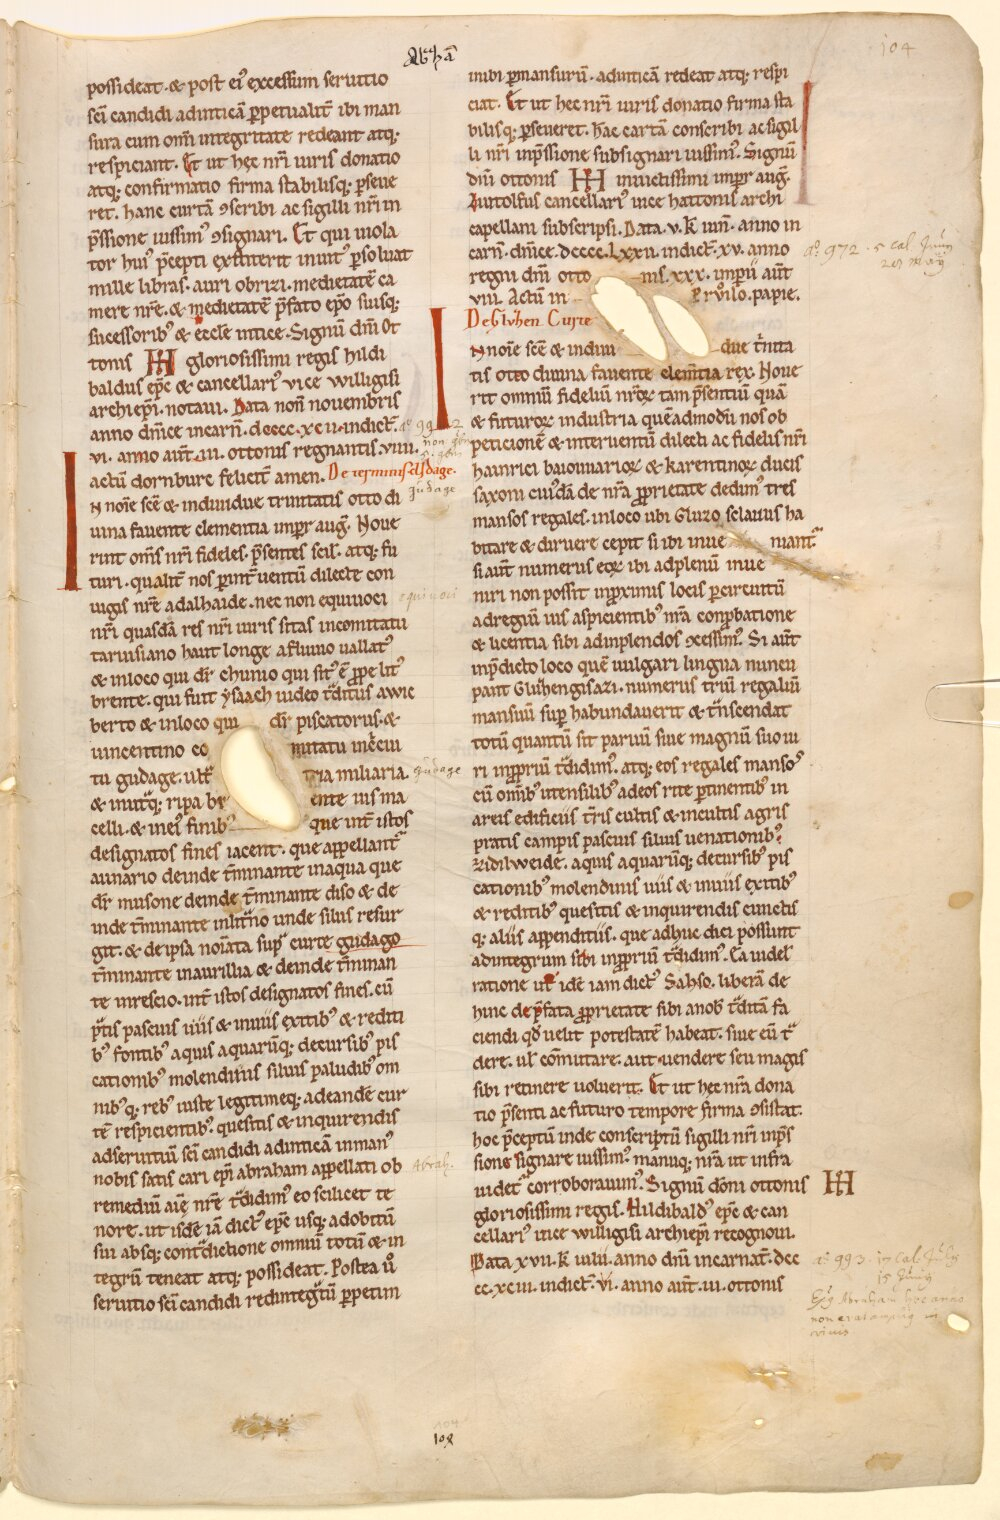 Abhā
104
possideat. & post ei᷒ excessum seruitio
sc̄i candidi adinticā ꝑpetualit̄ ibi man
sura cum om̄i integritate redeant atq;
respiciant. Et ut hęc nr̄i iuris donatio
atq; confirmatio firma stabilisq; ꝑseue
ret. hanc cartā ꝯscribi ac sigilli nr̄i in
p̄ssione iussim᷒ ꝯsignari. Et qui uiola
tor hui᷒ p̄cepti extiterit inuit᷒ ꝑsoluat
mille libras. auri obrizi. medietatē ca
mere nr̄e. & medietatē p̄fato ep̄o suisq;
successorib᷒ & eccl̄e intice. Signū dn̄i Ot
tonis gloriosissimi regis hildi
baldus ep̄c & cancellari᷒ vice willigisi
archiep̄i. notaui. Data non̄ nouembris
anno dn̄ice incarn̄. dcccc. xcii. indict̄.
vi. anno aut̄. iii. ottonis regnantis. viiii.
actū dornburc felicit̄ amen. De terminis elsdage.
Gudage
N noīe sc̄e & indiuidue trinitatis otto di
uina fauente clementia imp̄r aug̃. Noue
rint om̄s nr̄i fideles. p̄sentes scil̄. atq; fu
turi. qualit̄ nos ꝑ int̄uentū dilecte con
iugis nr̄e adalhaide. nec non equiuoci
equiuoci
nr̄i quasdā res nr̄i iuris sitas incomitatu
taruisiano haut longe afluuio uallat᷒
& inloco qui dr̄ chunio qui sit᷒ ē ꝓpe lit᷒
brente. qui fuit ẏsaach iudeo t᷑dit᷒us a wic
berto & inloco qui dr̄ piscatorus. &
uincentino co mitatu inęciu
tu gudage. ult᷑ t᷑ia miliaria.
gudage
& inutq; ripa br ente uis ma
celli. & in ei᷒ finib᷒ que int̄ istos
designatos fines iacent. que appellant᷑
aunario deinde t̄minante inaqua que
dr̄ musone deinde t̄minante diso & de
inde t̄minante inlit᷑no unde silus resur
git. & deipsa noīata sup᷑ curte gudago
t̄minante inaurillia & deinde t̄minan
te inrescio. int̄ istos designatos fines. cū
p̄tis pascuis uiis & inuiis exitib᷒ & rediti
b᷒ fontib᷒ aquis aquarūq; decursib᷒ pis
cationib᷒ molendinis siluis paludib᷒ om
nib᷒q; reb᷒ iuste legitimeq; adeandē cur
tē respicientib᷒. quesitis & inquirendis
adseruitiū sc̄i candidi adinticā inman᷒
nobis satis cari ep̄i abraham appellati ob
Abrah.
remediū aīę nr̄e t᷑didim᷒ eo scilicet te
nore. ut isdē iā dict᷒ ep̄c usq; adobitū
sui absq; cont᷑dictione omniū totū & in
tegrū teneat atq; possideat. Postea u᷒o
seruitio sc̄i candidi redinteg᷑tū ꝑpetim
inibi ꝑmansurū. adinticā redeat atq; respi
ciat. Et ut hec nr̄i iuris donatio firma sta
bilisq; ꝑseueret. hac cartā conscribi ac sigil
li nr̄i inp̄ssione subsignari iussim᷒. Signū
dn̄i ottonis inuictissimi imp̄r aug̃.
Luitolfus cancellari᷒ uice hattonis archi
capellani subscripsi. Data. v. k̄ iun̄. anno in
carn̄. dn̄ice. dcccc. lxxii. indict̄. xv. anno
aº. 972. 5 Cal. Junij
28 Maij
regni dn̄i otto nis. xxx. imperii aut̄
viii. Actū in Pruilo. papie.
De Gluhen Curte
N noīe sc̄e & indiui due t᷑nita
tis otto diuina fauente clem̄tia rex. Noue
rit omniū fidelium nr̄oꝝ tam p̄sentiū quā
& futuroꝝ industria quēadmodū nos ob
peticionē & interuentū dilecti ac fidelis nr̄i
hainrici baiouuarioꝝ & karentinoꝝ ducis
saxoni cuidā de nr̄a ꝓprietate dedim᷒ tres
mansos regales. inloco ubi Gluzo sclauus ha
bitare & diruere cepit si ibi inue niant᷑
si aut̄ numerus eoꝝ ibi adplenū inue
niri non possit inꝓximis locis ꝑ circuitū
adregiū ius aspicientib᷒ nr̄a conꝓbatione
& licentia sibi adinplendos ꝯcessim᷒. Si aut̄
inp̄dicto loco quē uulgari lingua nuncu
pant Gluhengisazi. numerus triū regaliū
mansuū suꝑ habundauerit & t᷑nscendat
totū quantū sit paruū siue magnū suo iu
ri inꝓpriū t᷑didim᷒. atq; eos regales manso᷒
cū omib᷒ utensilib᷒ adeos rite ꝑtinentib᷒ in
areis edificiis t̄ris cultis & incultis agris
pratis campis pascuis siluis uenationib᷒
zidilweide. aquis aquarūq; decursib᷒ pis
cationib᷒ molendinis uiis & inuiis exitib᷒
& reditib᷒ quesitis & inquirendis cunctis
q; aliis appenditiis. que adhuc dici possunt
adintegrum sibi inꝓpriū t᷑didim᷒. Ea uidel̄
ratione ut idē iam dict᷒ Sahso. liberā de
hinc de p̄fata ꝓprietate sibi anob᷒ t᷑ditā fa
ciendi qđ uelit potestatē habeat. siue eū t᷑
dere. ul̄ cōmutare. aut uendere seu magis
sibi retinere uoluerit. Et ut hęc nr̄a dona
tio p̄senti ac futuro tempore firma ꝯsistat.
hoc p̄ceptū inde conscriptū sigilli nr̄i inp̄s
sione signare iussim᷒. manuq; nr̄a ut infra
uidet᷑ corroborauim᷒. Signū dōni ottonis
gloriosissimi regis. Hildibald᷒ ep̄c & can
cellari᷒ uice willigisi archiep̄i recognoui.
Data xvii. k̄ iulii. anno dn̄i incarnat̄. dcc
aº 993. 17 Cal. Julij
15 Junij
cc. xciii. indict̄. vi. anno aut̄. iii. ottonis
104
108